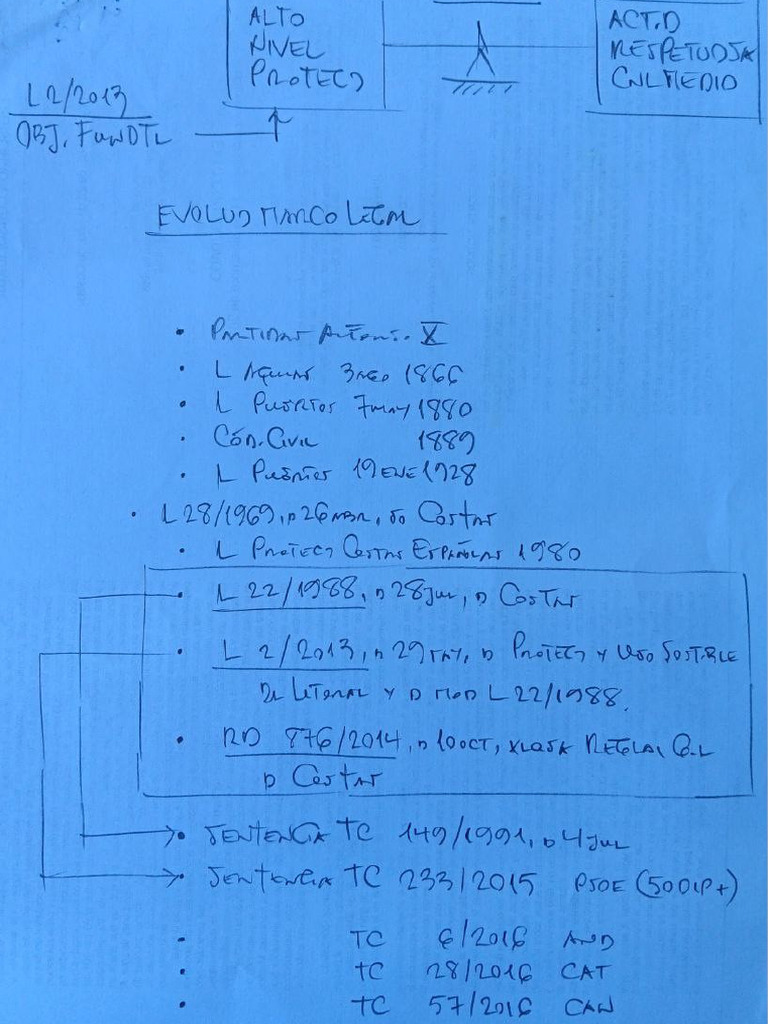 ALTO
NIVEL
PROTECƆ
ACT.D
RESPETUOSA
CNL MEDIO
L 2/2013
OBJ. FUNDTL
EVOLUƆ MARCO LEGAL
• PARTIDAS ALFONSO X
• L AGUAS 3 AGO 1866
• L PUERTOS 7 MAY 1880
• CÓD. CIVIL 1889
• L PUERTOS 19 ENE 1928
• L 28/1969, D 26 ABR, SO COSTAS
• L PROTECƆ COSTAS ESPAÑOLAS 1980
• L 22/1988, D 28 JUL, D COSTAS
• L 2/2013, D 29 MAY, D PROTECƆ Y USO SOSTIBLE
DL LITORAL Y D MOD L 22/1988.
• RD 876/2014, D 10 OCT, XLQSA REGLA, G.L
D COSTAS
• SENTENCIA TC 149/1991, D 4 JUL
• SENTENCIA TC 233/2015 PSOE (50 DIP+)
• TC 6/2016 AND
• TC 28/2016 CAT
• TC 57/2016 CAN